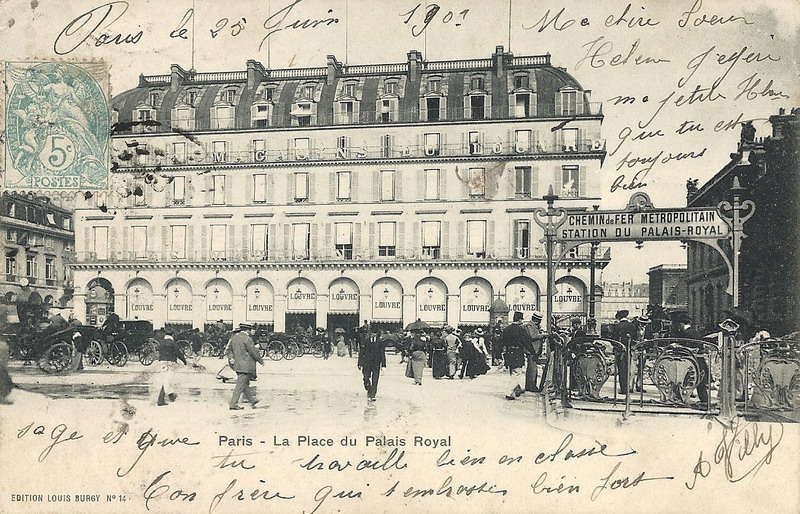 Paris le 25 Juin 190
Ma chère Soeur
Helen j'espère
ma petite
que tu es
toujours
bien
5c
POSTES
MAGASINS DU LOUVRE
CHEMIN de FER METROPOLITAIN
STATION DU PALAIS-ROYAL
LOUVRE LOUVRE LOUVRE LOUVRE LOUVRE LOUVRE LOUVRE LOUVRE LOUVRE LOUVRE LOUVRE
sage et que
Paris - La Place du Palais Royal
tu travaille bien en classe
Ton frère qui t'embrasse bien fort
EDITION LOUIS BURGY Nº 14